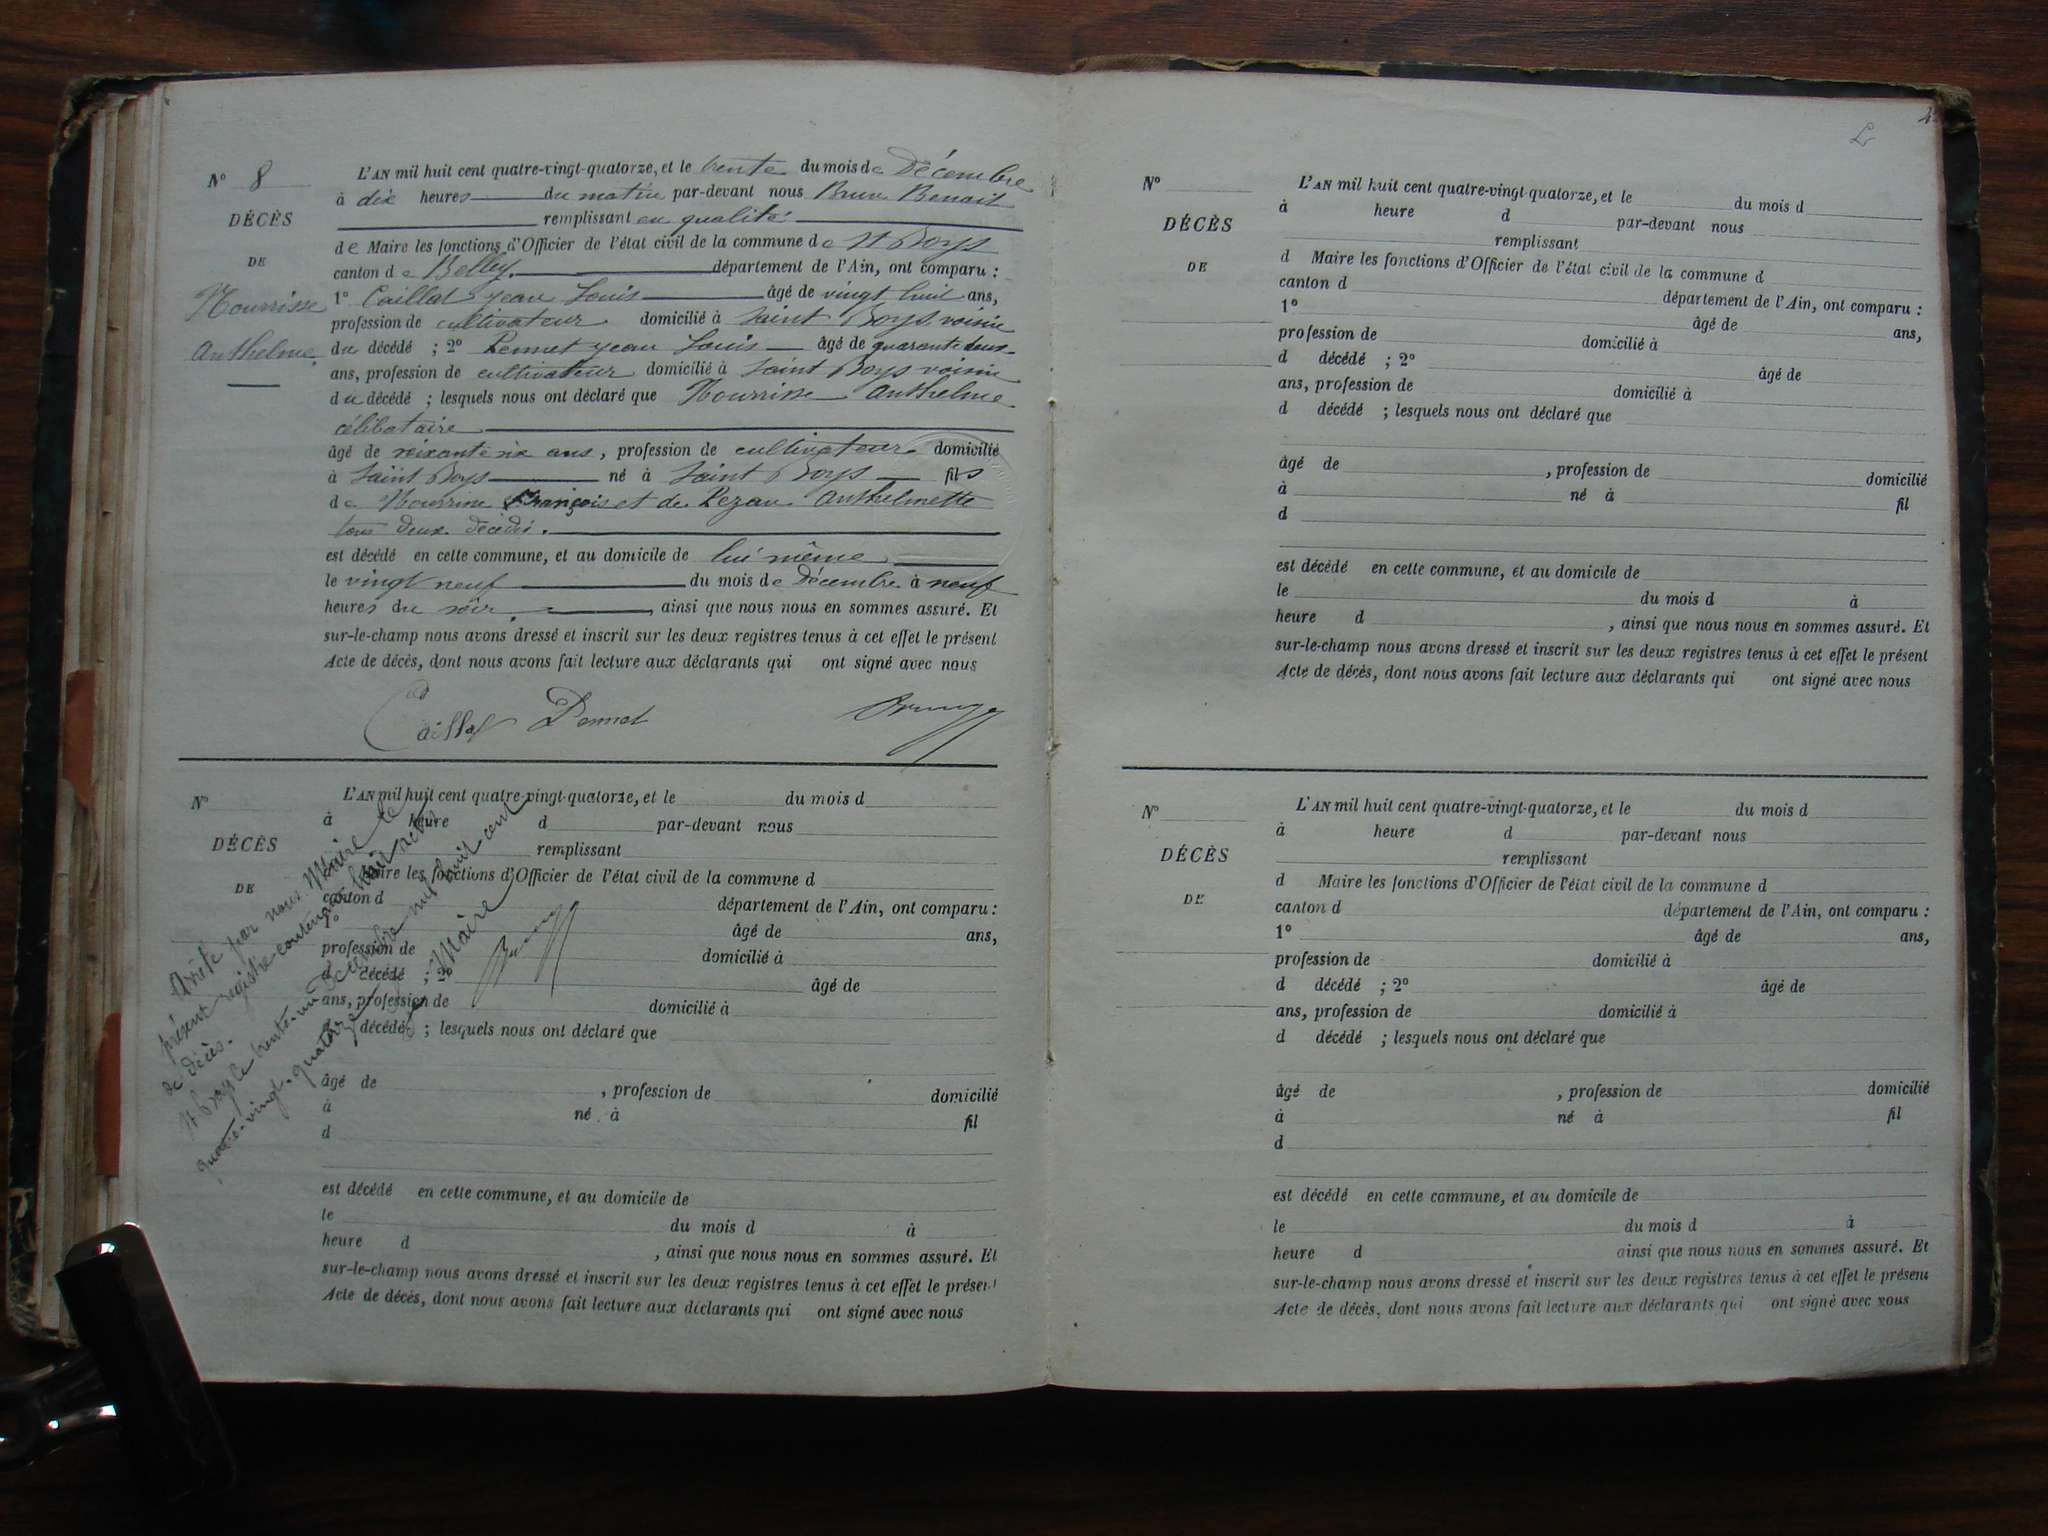 N° 8
DÉCÈS
DE
Nourrisse
Anthelme
L'AN mil huit cent quatre-vingt-quatorze, et le trente du mois de Décembre
à dix heures du matin par-devant nous Brun Benoit
remplissant en qualité
de Maire les fonctions d'Officier de l'état civil de la commune de St Boys
canton de Belley. département de l'Ain, ont comparu :
1° Caillat Jean Louis âgé de vingt huit ans,
profession de cultivateur domicilié à Saint Boys voisin
du décédé ; 2° Pennet Jean Louis âgé de quarante deux
ans, profession de cultivateur domicilié à Saint Boys voisin
du décédé ; lesquels nous ont déclaré que Nourrisse Anthelme
célibataire
âgé de soixante six ans, profession de cultivateur domicilié
à Saint Boys né à Saint Boys fils
de Nourrisse François et de Anthelmette
tous deux décédés.
est décédé en cette commune, et au domicile de lui même
le vingt neuf du mois de Décembre à neuf
heures du soir, ainsi que nous nous en sommes assuré. Et
sur-le-champ nous avons dressé et inscrit sur les deux registres tenus à cet effet le présent
Acte de décès, dont nous avons fait lecture aux déclarants qui ont signé avec nous
Caillat Pennet Brun
N°
DÉCÈS
DE
L'AN mil huit cent quatre-vingt-quatorze, et le du mois d
à heure d par-devant nous
remplissant
Maire les fonctions d'Officier de l'état civil de la commune d
canton d département de l'Ain, ont comparu :
1° âgé de ans,
profession de domicilié à
d décédé ; 2° âgé de
ans, profession de domicilié à
d décédé ; lesquels nous ont déclaré que
âgé de , profession de domicilié
à né à fil
d
est décédé en cette commune, et au domicile de
le du mois d à
heure d , ainsi que nous nous en sommes assuré. Et
sur-le-champ nous avons dressé et inscrit sur les deux registres tenus à cet effet le présent
Acte de décès, dont nous avons fait lecture aux déclarants qui ont signé avec nous
Arrêté par nous Maire le
présent registre contenant huit actes
de décès.
St Boys le trente-un Décembre mil huit cent
quatre-vingt-quatorze
Le Maire
Brun
N°
DÉCÈS
DE
L'AN mil huit cent quatre-vingt-quatorze, et le du mois d
à heure d par-devant nous
remplissant
d Maire les fonctions d'Officier de l'état civil de la commune d
canton d département de l'Ain, ont comparu :
1° âgé de ans,
profession de domicilié à
d décédé ; 2° âgé de
ans, profession de domicilié à
d décédé ; lesquels nous ont déclaré que
âgé de , profession de domicilié
à né à fil
d
est décédé en cette commune, et au domicile de
le du mois d à
heure d , ainsi que nous nous en sommes assuré. Et
sur-le-champ nous avons dressé et inscrit sur les deux registres tenus à cet effet le présent
Acte de décès, dont nous avons fait lecture aux déclarants qui ont signé avec nous
N°
DÉCÈS
DE
L'AN mil huit cent quatre-vingt-quatorze, et le du mois d
à heure d par-devant nous
remplissant
d Maire les fonctions d'Officier de l'état civil de la commune d
canton d département de l'Ain, ont comparu :
1° âgé de ans,
profession de domicilié à
d décédé ; 2° âgé de
ans, profession de domicilié à
d décédé ; lesquels nous ont déclaré que
âgé de , profession de domicilié
à né à fil
d
est décédé en cette commune, et au domicile de
le du mois d à
heure d ainsi que nous nous en sommes assuré. Et
sur-le-champ nous avons dressé et inscrit sur les deux registres tenus à cet effet le présent
Acte de décès, dont nous avons fait lecture aux déclarants qui ont signé avec nous